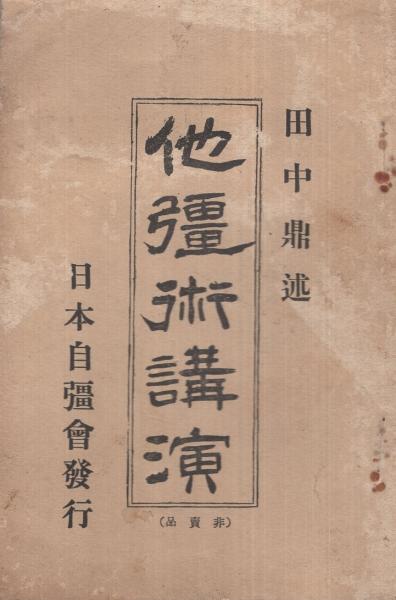 田中鼎述
他彊術講演
(非賣品)
日本自彊會發行